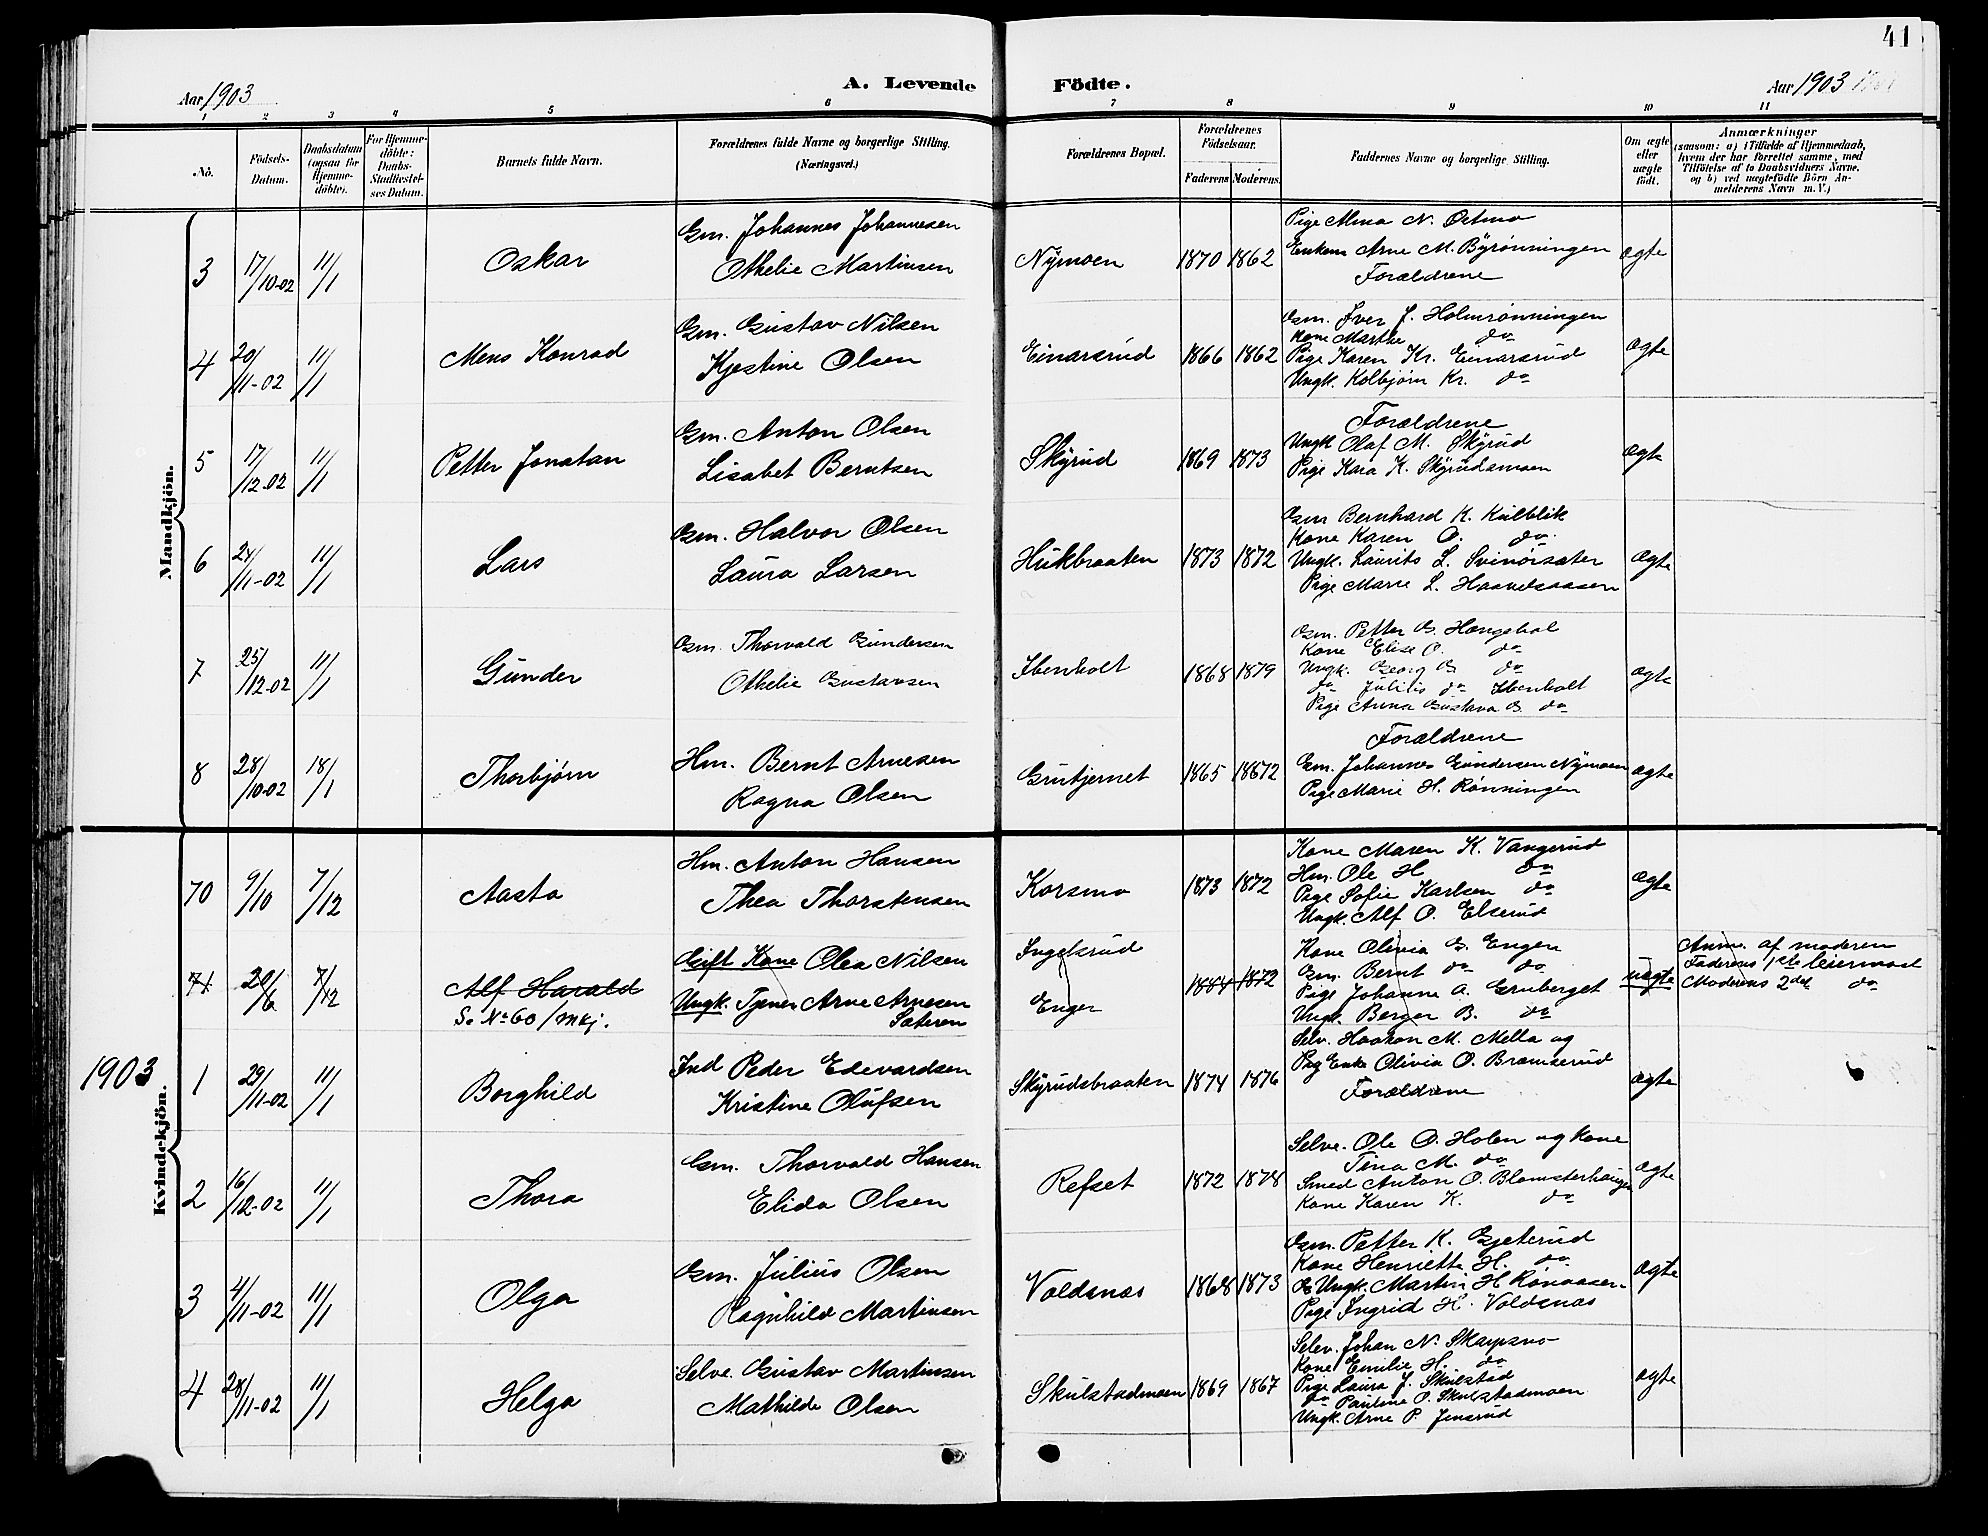 41
Aar 1903
A. Levende Födte.
Aar 1903
1 2 3 4 5 6 7 8 9 10 11
No.
Födsels-Datum.
Daabsdatum (ogsaa for Hjemme-döbte).
For Hjemme-döbte: Daabs-Stadfæstel-ses Datum.
Barnets fulde Navn.
Forældrenes fulde Navne og borgerlige Stilling. (Næringsvei.)
Forældrenes Bopæl.
Forældrenes Födselsaar.
Faderens Moderens
Faddernes Navne og borgerlige Stilling.
Om ægte eller uægte födt.
Anmærkninger
(saasom: a) i Tilfælde af Hjemmedaab,
hvem der har forrettet samme, med
Tilföielse af to Daabsvidners Navne,
og b) ved uægtefödte Börn An-
melderens Navn m. V.)
Mandkjön.
3 17/10-02 11/1 Oskar
Gm. Johannes Johannesen
Othelie Martinsen
Nymoen 1870 1862
Pige Alma N. Østmo
Enkem Arne M. Byrønningen
Forældrene
ægte
4 20/11-02 11/1 Mens Konrad
Gm. Gustav Nilsen
Kjestine Olsen
Einarsrud 1866 1862
Gm. Iver J. Holmrønningen
Kone Marthe do
Pige Karen Kr. Einarsrud
Ungk. Kolbjørn Kr. do
ægte
5 17/12-02 11/1 Petter Jonatan
Gm. Anton Olsen
Lisabet Berntsen
Skyrud 1869 1873
Forældrene
Ungk Olaf M. Skyrud
Pige Kaia K. Skyrudsmoen
ægte
6 24/11-02 11/1 Lars
Gm. Halvor Olsen
Laura Larsen
Hukbraaten 1873 1872
Gm Bernhard K. Kulblik
Kone Karen O. do.
Ungk. Laurits L. Svinörsæter
Pige Marie L. Haavelsaasen
ægte
7 25/12-02 11/1 Gunder
Gm. Thorvald Gundersen
Othelie Gustavsen
Ibenholt 1868 1879
Gm. Petter G. Hængehol
Kone Elise O. do
Ungk. Georg G do
do Julius do Ibenholt
Pige Anna Gustava G. do
ægte
8 28/10-02 18/1 Thorbjørn
Hm. Bernt Arnesen
Ragna Olsen
Gruitjernet 1865 18672
Forældrene
Gm. Johannes Gundersen Nymoen
Pige Marie H. Rønningen
ægte
Kvindekjön.
70 9/10 7/12 Aasta
Hm. Anton Hansen
Thea Thorstensen
Korsmo 1873 1872
Kone Maren K. Vangerud
Hm. Ole H do
Pige Sofie Karlsen do
Ungk. Alf O. Elserud
ægte
71 20/6 7/12 Alf Harald
S. No 60/mkj.
Gift Kone Olea Nilsen
Ungk. Tjener Arne Arnesen
Sæteren
Ingelsrud
Enger
1884 1872
Kone Olivia G. Engen
Gm. Bernt do do
Pige Johanne A. Gruberget
Ungk. Berger B. do
uægte
Anm. af moderen
Faderens 1ste leiermaal
Moderens 2det do
1903
1 29/11-02 11/1 Borghild
Ind Peder Edevardsen
Kristine Olufsen
Skyrudsbraaten 1874 1876
Selv. Haakon M. Mella og
Pig Enke Olivia O. Bramserud
Forældrene
ægte
2 16/12-02 11/1 Thora
Gm. Thorvald Hansen
Elida Olsen
Refset 1872 1878
Selve. Ole O. Holen og Kone
Tina M. do
Smed Anton O. Blomsterhaugen
Kone Karen K. do
ægte
3 4/11-02 11/1 Olga
Gm. Julius Olsen
Ragnhild Martinsen
Voldsnæs 1868 1873
Gm. Petter K. Gjeterud
Kone Henriette H. do
Ungk. Martin H. Rønaasen
Pige Ingrid H. Voldsnæs
ægte
4 28/11-02 11/1 Helga
Selve. Gustav Martinsen
Mathilde Olsen
Skulstadmoen 1869 1867
Selev. Johan N. Skarpsno
Kone Emilie H. do
Pige Laura J. Skulstad
do Pauline O. Skulstadmoen
Ungk. Arne P. Jensrud
ægte